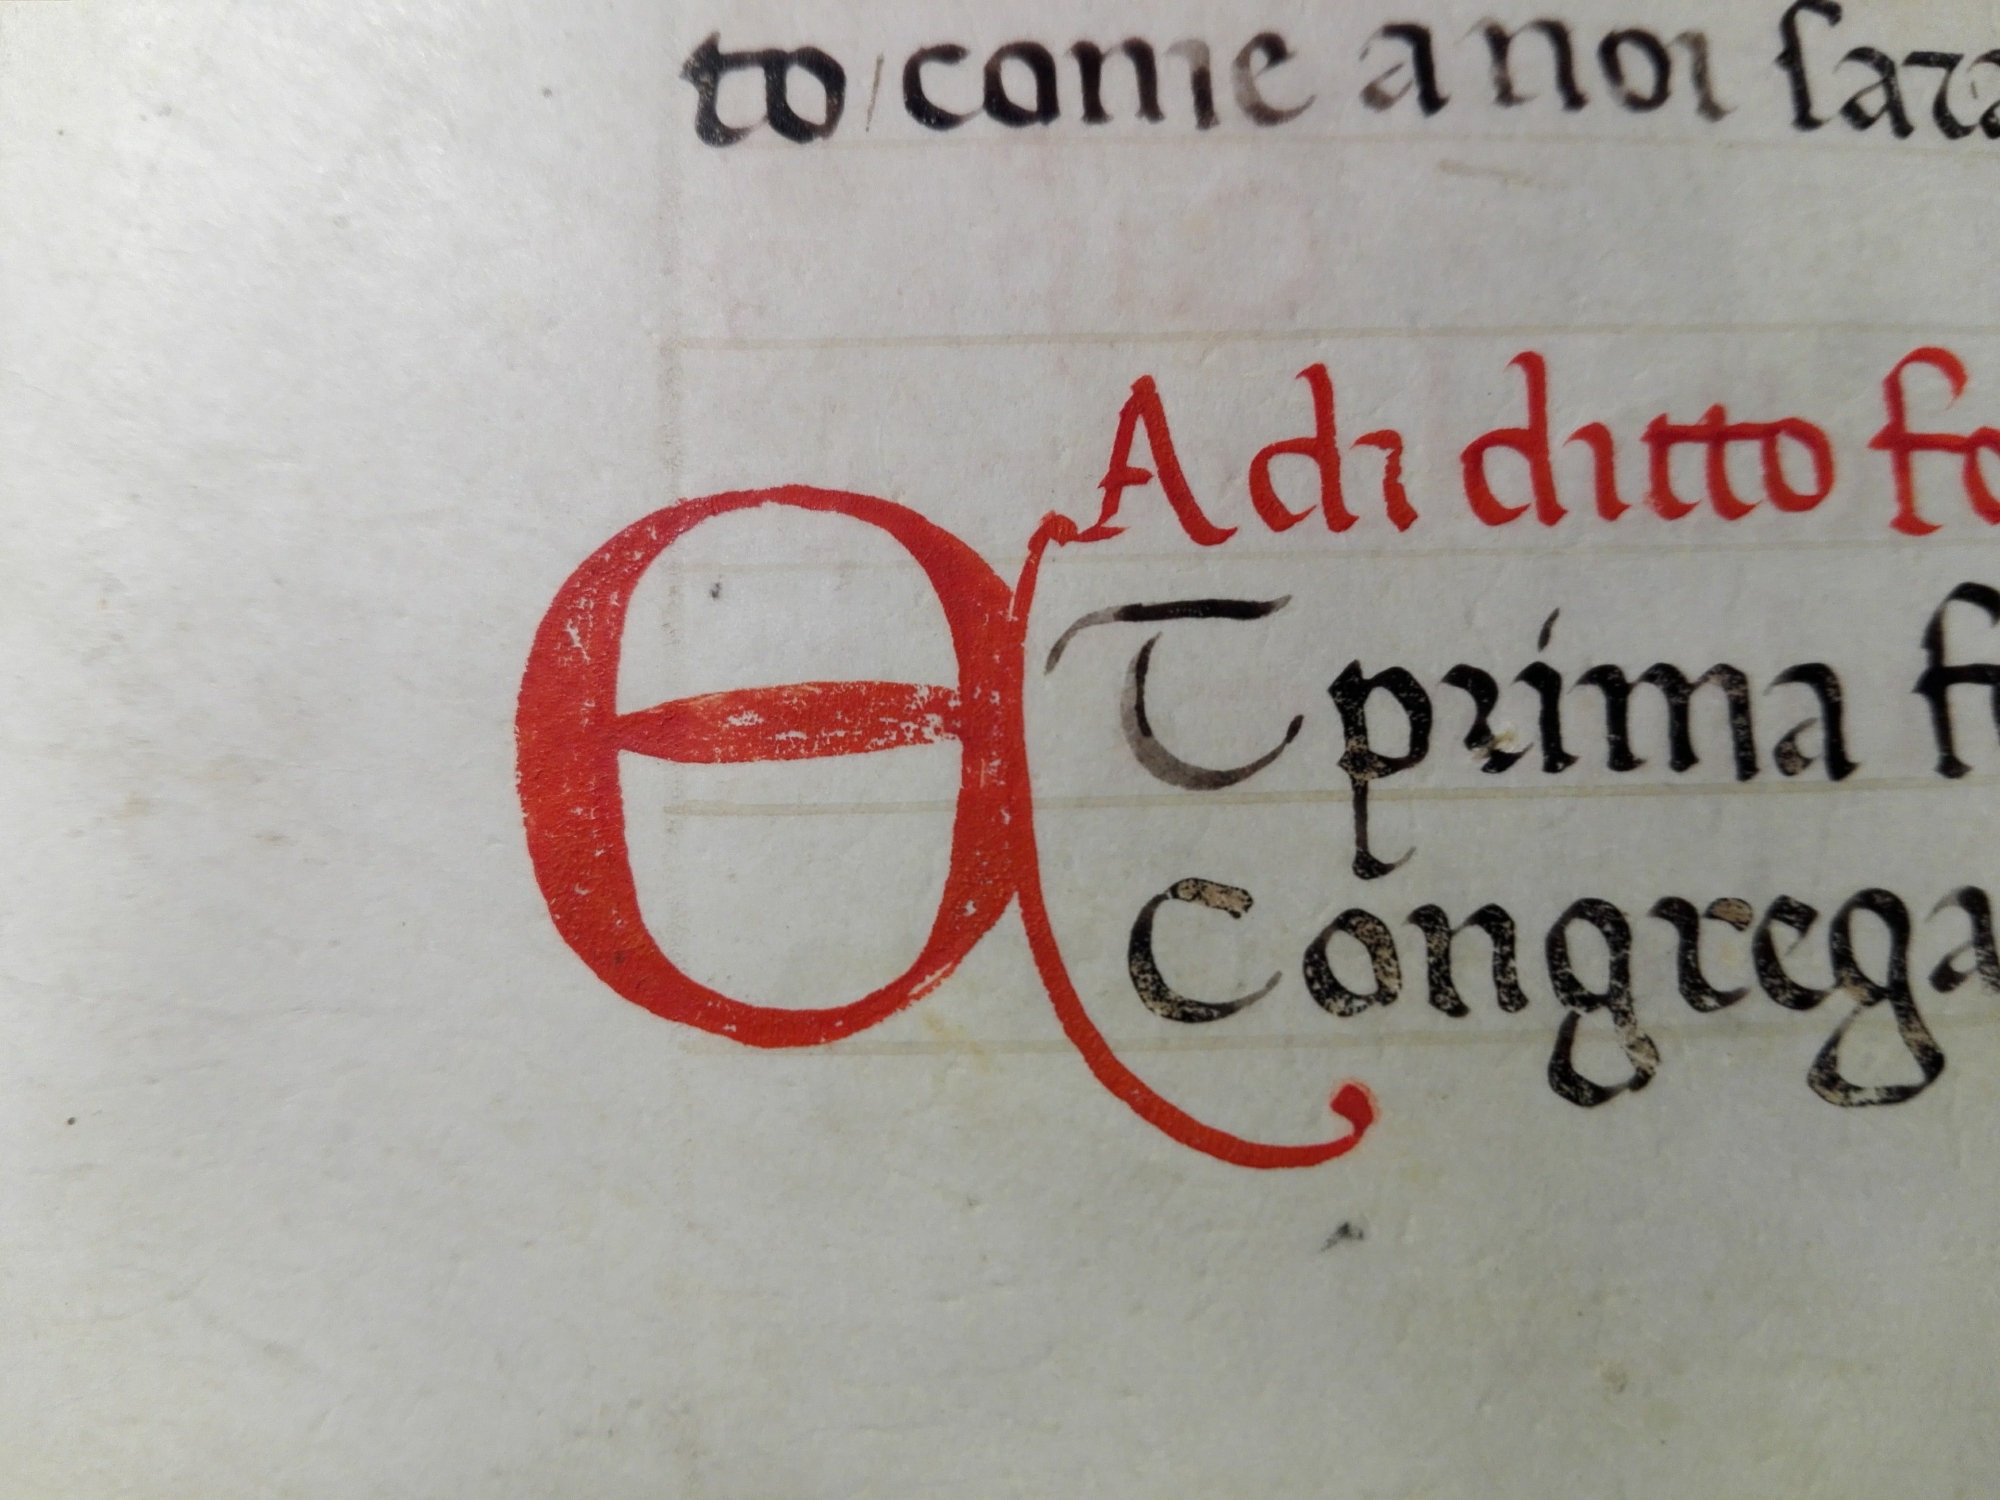 to come a noi sara
A di ditto fo
E T prima f
Congrega